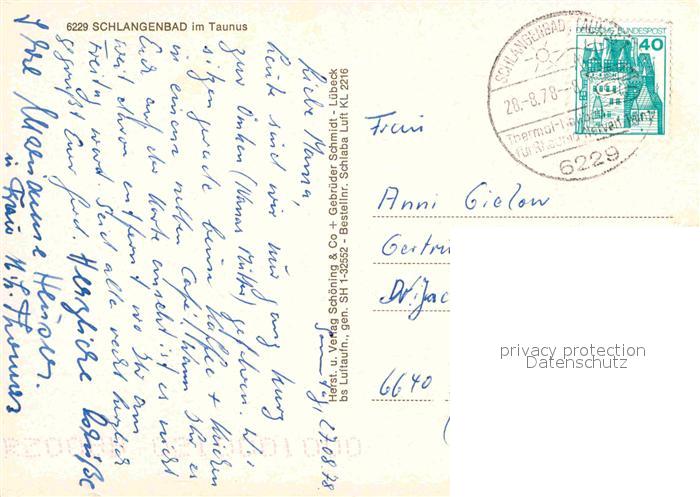 6229 SCHLANGENBAD im Taunus
Samstag, 27.08.78.
Liebe Mama,
heute sind wir nur ganz kurz
zur Omken (Mamas Mutter) gefahren. Wir
sitzen gerade beim Kaffee + Kuchen
in einem netten Café. Wenn Ihr es
Euch auf der Karte anseht ist es nicht
weit davon entfernt wo Ihr am
Freitag ward. Seid alle recht herzlich
gegrüßt Eure Gerd. Herzliche Grüße
Ihre Marianne
in Frau u. Thomas
Herst. u. Verlag Schöning & Co + Gebrüder Schmidt - Lübeck
bs Luftaufn., gen. SH 1-32552 - Bestellnr. Schlaba Luft KL 2216
SCHLANGENBAD
28.-8.78.-8
Thermal-
für Rheuma Nerven
6229
BUNDESPOST
40
Frau
Anni Gielow
Gertru
Dr. Jac
6640
privacy protection
Datenschutz